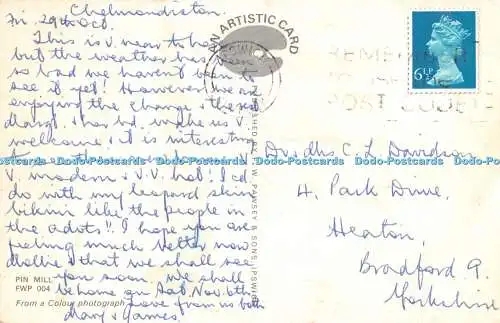 Chelmondiston.
Fri. 29th Oct.
This is v. near here
but the weather has been
so bad we haven't been to
see it yet! However we are
enjoying the change & the rest
Margt. has bd. with us V.
welcome & it is interesting
V. modern & V.V. hot! I cd.
do with my leopard skin
bikini like the people in
the advts!! I hope you are
feeling much better now
Mollie & that we shall see
you soon. We shall
be home on Sat. Nov. 6th
Love from us both
Mary & James.
PIN MILL
FWP 004
From a Colour photograph
AN ARTISTIC CARD
PUBLISHED BY F. W. PAWSEY & SONS, IPSWICH
IPSWICH
REMEMBER
POST CODE
6½P
Dr. & Mrs C. L. Davidson
4, Park Drive,
Heaton,
Bradford 9.
Yorkshire
Dodo-Postcards Dodo-Postcards Dodo-Postcards Dodo-Postcards Dodo-Postcards